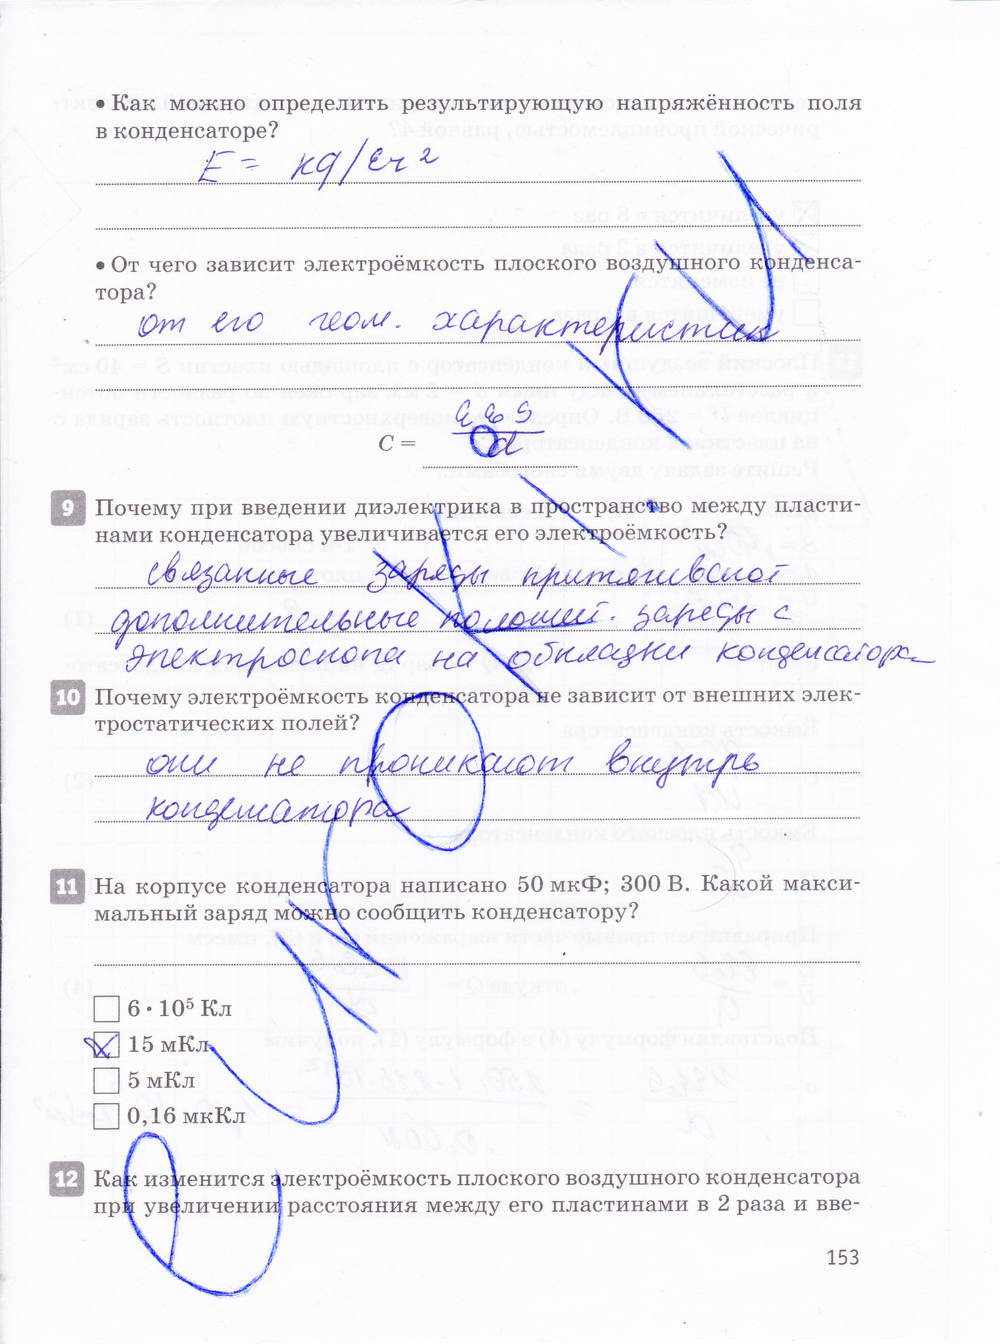 • Как можно определить результирующую напряжённость поля
в конденсаторе?
E = кq/εr²
• От чего зависит электроёмкость плоского воздушного конденса-
тора?
от его геом. характеристик
C = εε₀S
d
9 Почему при введении диэлектрика в пространство между пласти-
нами конденсатора увеличивается его электроёмкость?
связанные заряды притягивают
дополнительные полошит. заряды с
электроскопа на обкладки конденсатора
10 Почему электроёмкость конденсатора не зависит от внешних элек-
тростатических полей?
они не проникают внутрь
конденсатора
11 На корпусе конденсатора написано 50 мкФ; 300 В. Какой макси-
мальный заряд можно сообщить конденсатору?
6 · 10⁵ Кл
15 мКл
5 мКл
0,16 мкКл
12 Как изменится электроёмкость плоского воздушного конденсатора
при увеличении расстояния между его пластинами в 2 раза и вве-
153